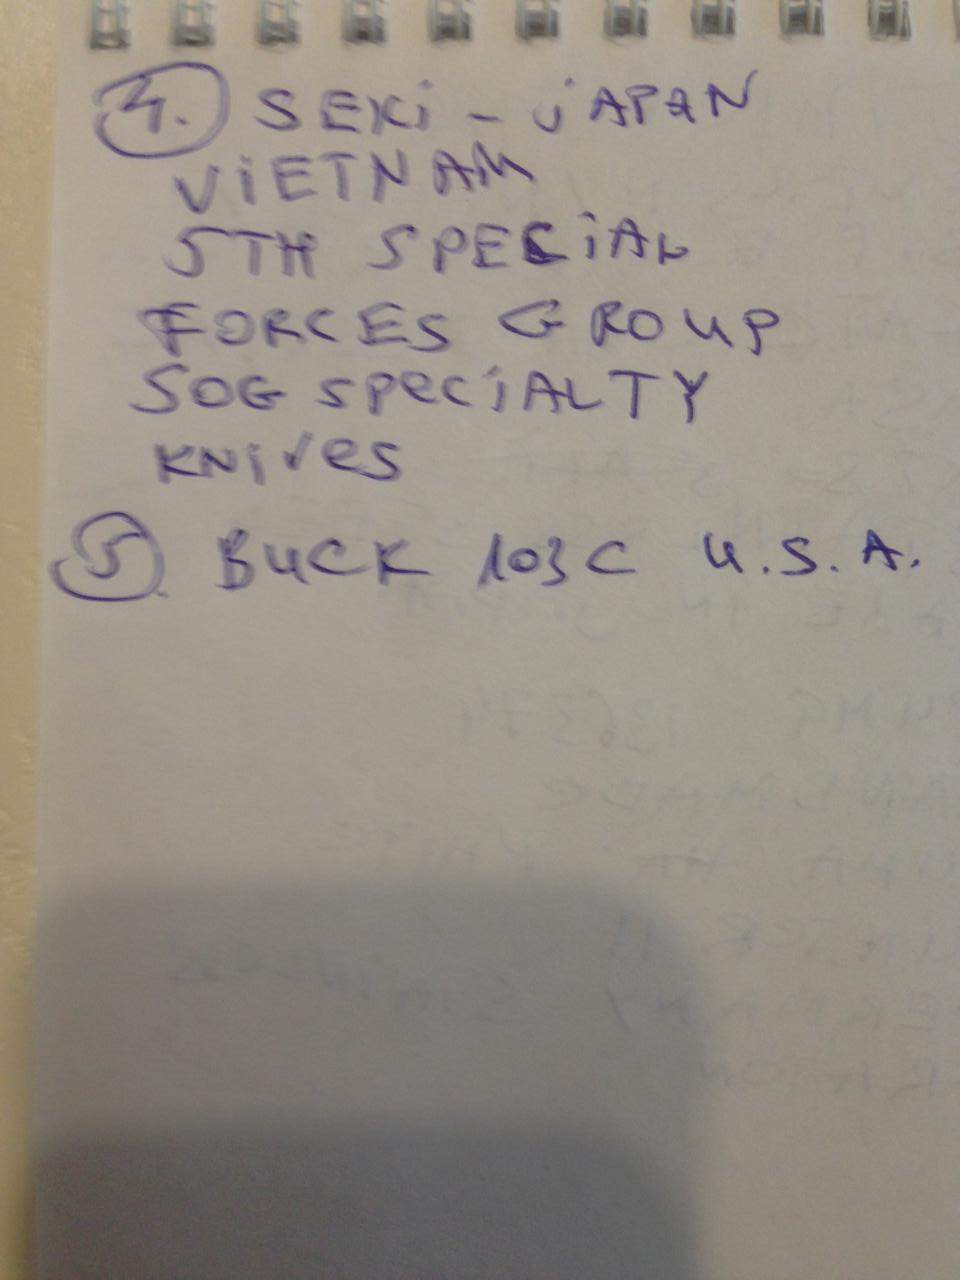 4. SEKi - JAPAN
ViETNAM
5TH SPECiAL
FORCES GROUP
SOG SPeCiALTY
KNiVeS
5. BUCK 103C U.S.A.